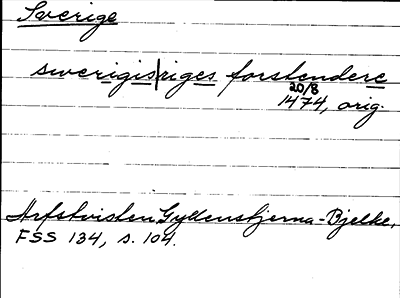 Sverige
swerigis|riges forstendere
20/8
1474, orig.
Arfstvisten Gyllenstjerna-Bjelke,
FSS 134, s. 104.